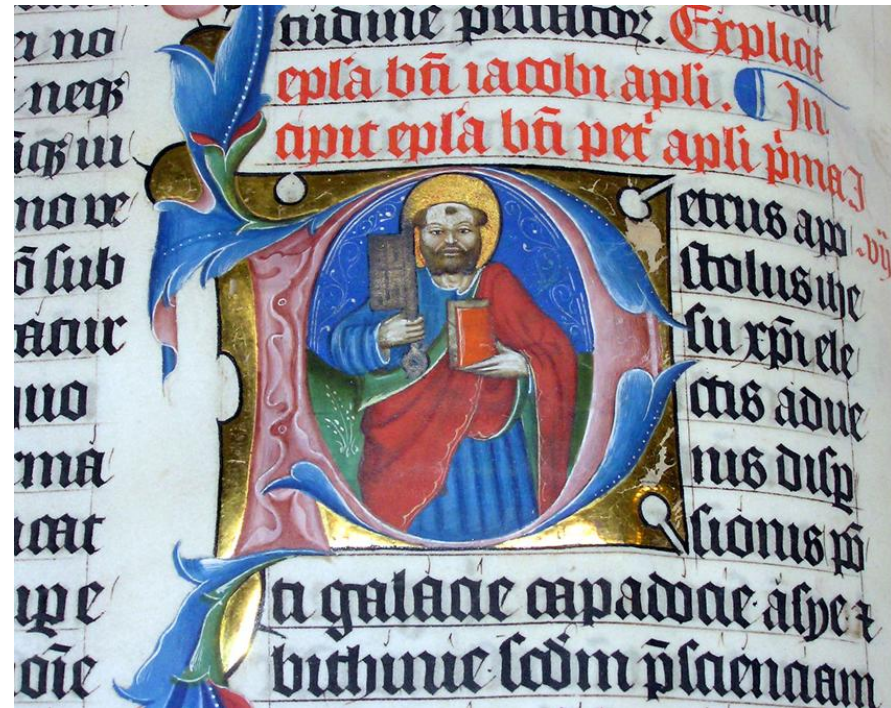 no
neqꝫ
mo ve
sub
atur
quo
cat
tudine peccatoꝝ. Explicit
epl'a bt̄i iacobi apl'i. In
cipit epl'a bt̄i pet' apl'i p̄ma
Petrus apo
stolus ihe
su xp̄i ele
ctis adue
nis disp
sionis pō
ti galacie capadocie· asye ⁊
bithinie· scd̄m p̄scienciam